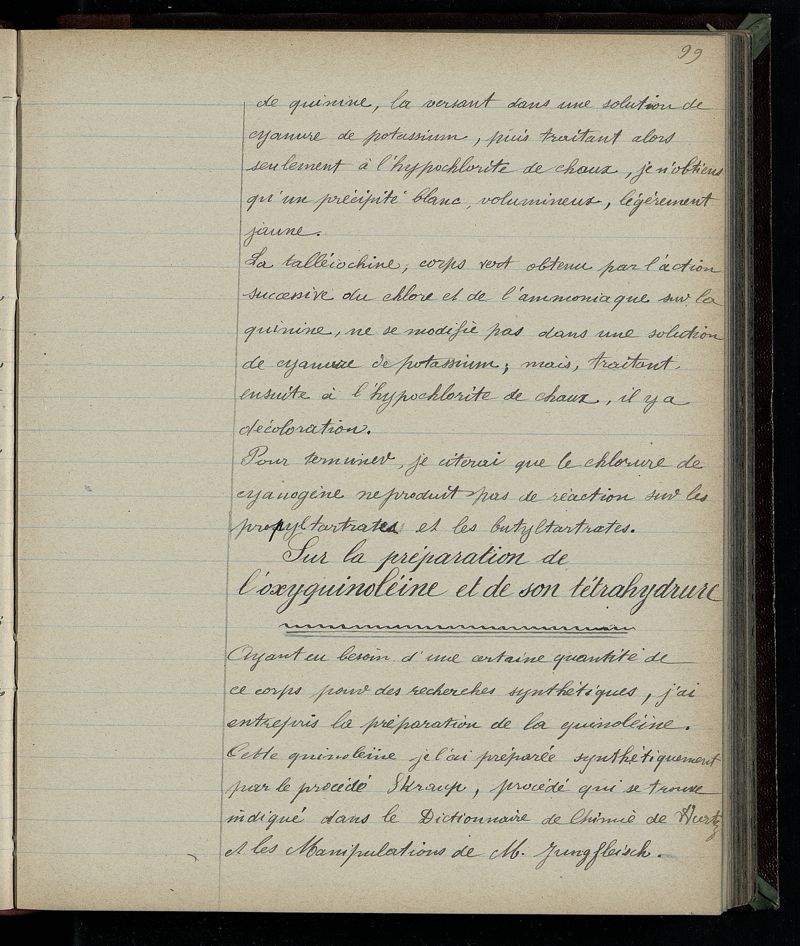 99
de quinine, la versant dans une solution de
cyanure de potassium, puis traitant alors
seulement à l'hypochlorite de chaux, je n'obtiens
qu'un précipité blanc, volumineux, légèrement
jaune.
La talléiochine, corps vert obtenu par l'action
successive du chlore et de l'ammoniaque sur la
quinine, ne se modifie pas dans une solution
de cyanure de potassium; mais, traitant
ensuite à l'hypochlorite de chaux, il y a
décoloration.
Pour terminer, je citerai que le chlorure de
cyanogène ne produit pas de réaction sur les
propyltartrates et les butyltartrates.
Sur la préparation de
l'oxyquinoléine et de son tétrahydrure
Ayant eu besoin d'une certaine quantité de
ce corps pour des recherches synthétiques, j'ai
entrepris la préparation de la quinoléine.
Cette quinoléine je l'ai préparée synthétiquement
par le procédé Skraup, procédé qui se trouve
indiqué dans le Dictionnaire de Chimie de Wurtz
et les Manipulations de M. Jungfleisch.